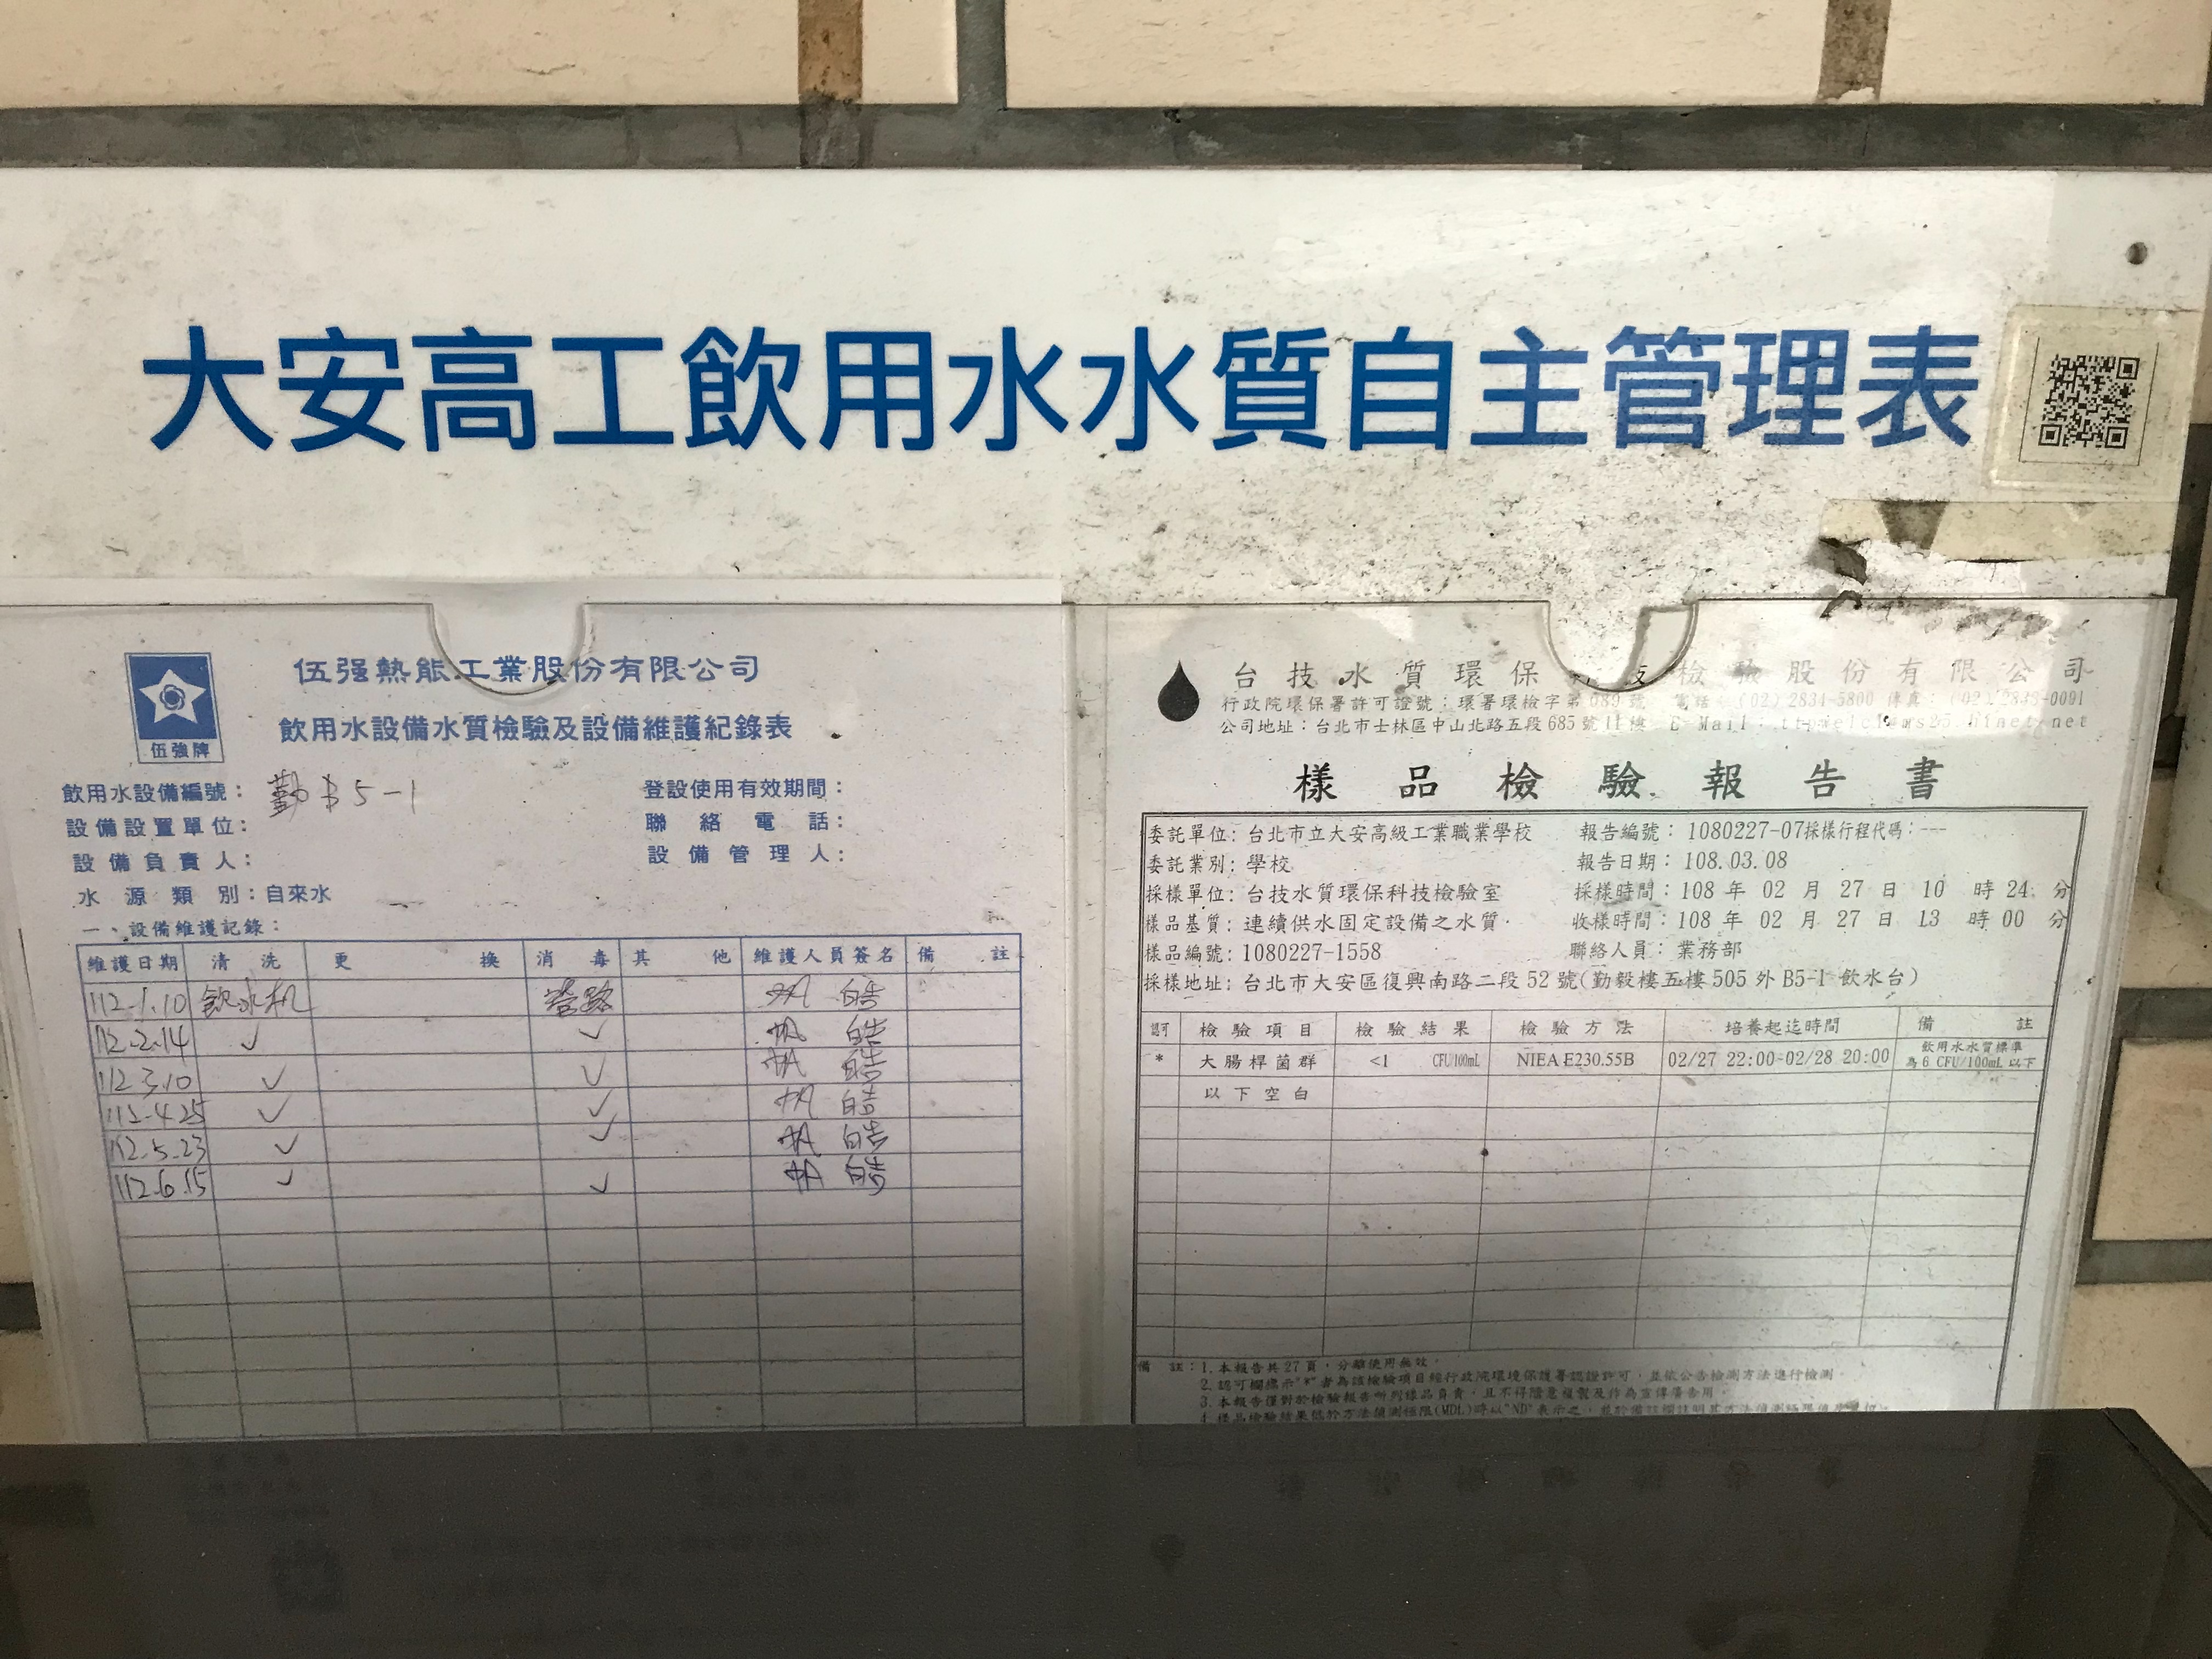 大安高工飲用水水質自主管理表
伍强熱能工業股份有限公司
伍強牌
飲用水設備水質檢驗及設備維護紀錄表
飲用水設備編號： 勤B5-1
登設使用有效期間：
設備設置單位：
聯絡電話：
設備負責人：
設備管理人：
水源類別：自來水
一、設備維護記錄：
維護日期 清洗 更換 消毒 其他 維護人員簽名 備註
112.1.10 飲水机 管路
112.2.14 ✓ ✓
112.3.10 ✓ ✓
112.4.25 ✓ ✓
112.5.23 ✓ ✓
112.6.15 ✓ ✓
台技水質環保科技檢驗股份有限公司
行政院環保署許可證號：環署環檢字第 089 號 電話：(02) 2834-5800 傳真：(02) 2833-0091
公司地址：台北市士林區中山北路五段 685 號 11 樓 E-Mail：
樣品檢驗報告書
委託單位：台北市立大安高級工業職業學校 報告編號：1080227-07 採樣行程代碼：---
委託業別：學校 報告日期：108.03.08
採樣單位：台技水質環保科技檢驗室 採樣時間：108 年 02 月 27 日 10 時 24 分
樣品基質：連續供水固定設備之水質 收樣時間：108 年 02 月 27 日 13 時 00 分
樣品編號：1080227-1558 聯絡人員：業務部
採樣地址：台北市大安區復興南路二段 52 號(勤毅樓五樓 505 外 B5-1 飲水台)
認可 檢驗項目 檢驗結果 檢驗方法 培養起迄時間 備註
* 大腸桿菌群 <1 CFU/100mL NIEA E230.55B 02/27 22:00-02/28 20:00 飲用水水質標準為 6 CFU/100mL 以下
以下空白
備註：1. 本報告共 27 頁，分離使用無效。
2. 認可欄標示"*"者為該檢驗項目經行政院環境保護署認證許可，並依公告檢測方法進行檢測。
3. 本報告僅對於檢驗報告所列樣品負責，且不得隨意複製及作為宣傳廣告用。
4. 樣品檢驗結果低於方法偵測極限(MDL)時以"ND"表示之，